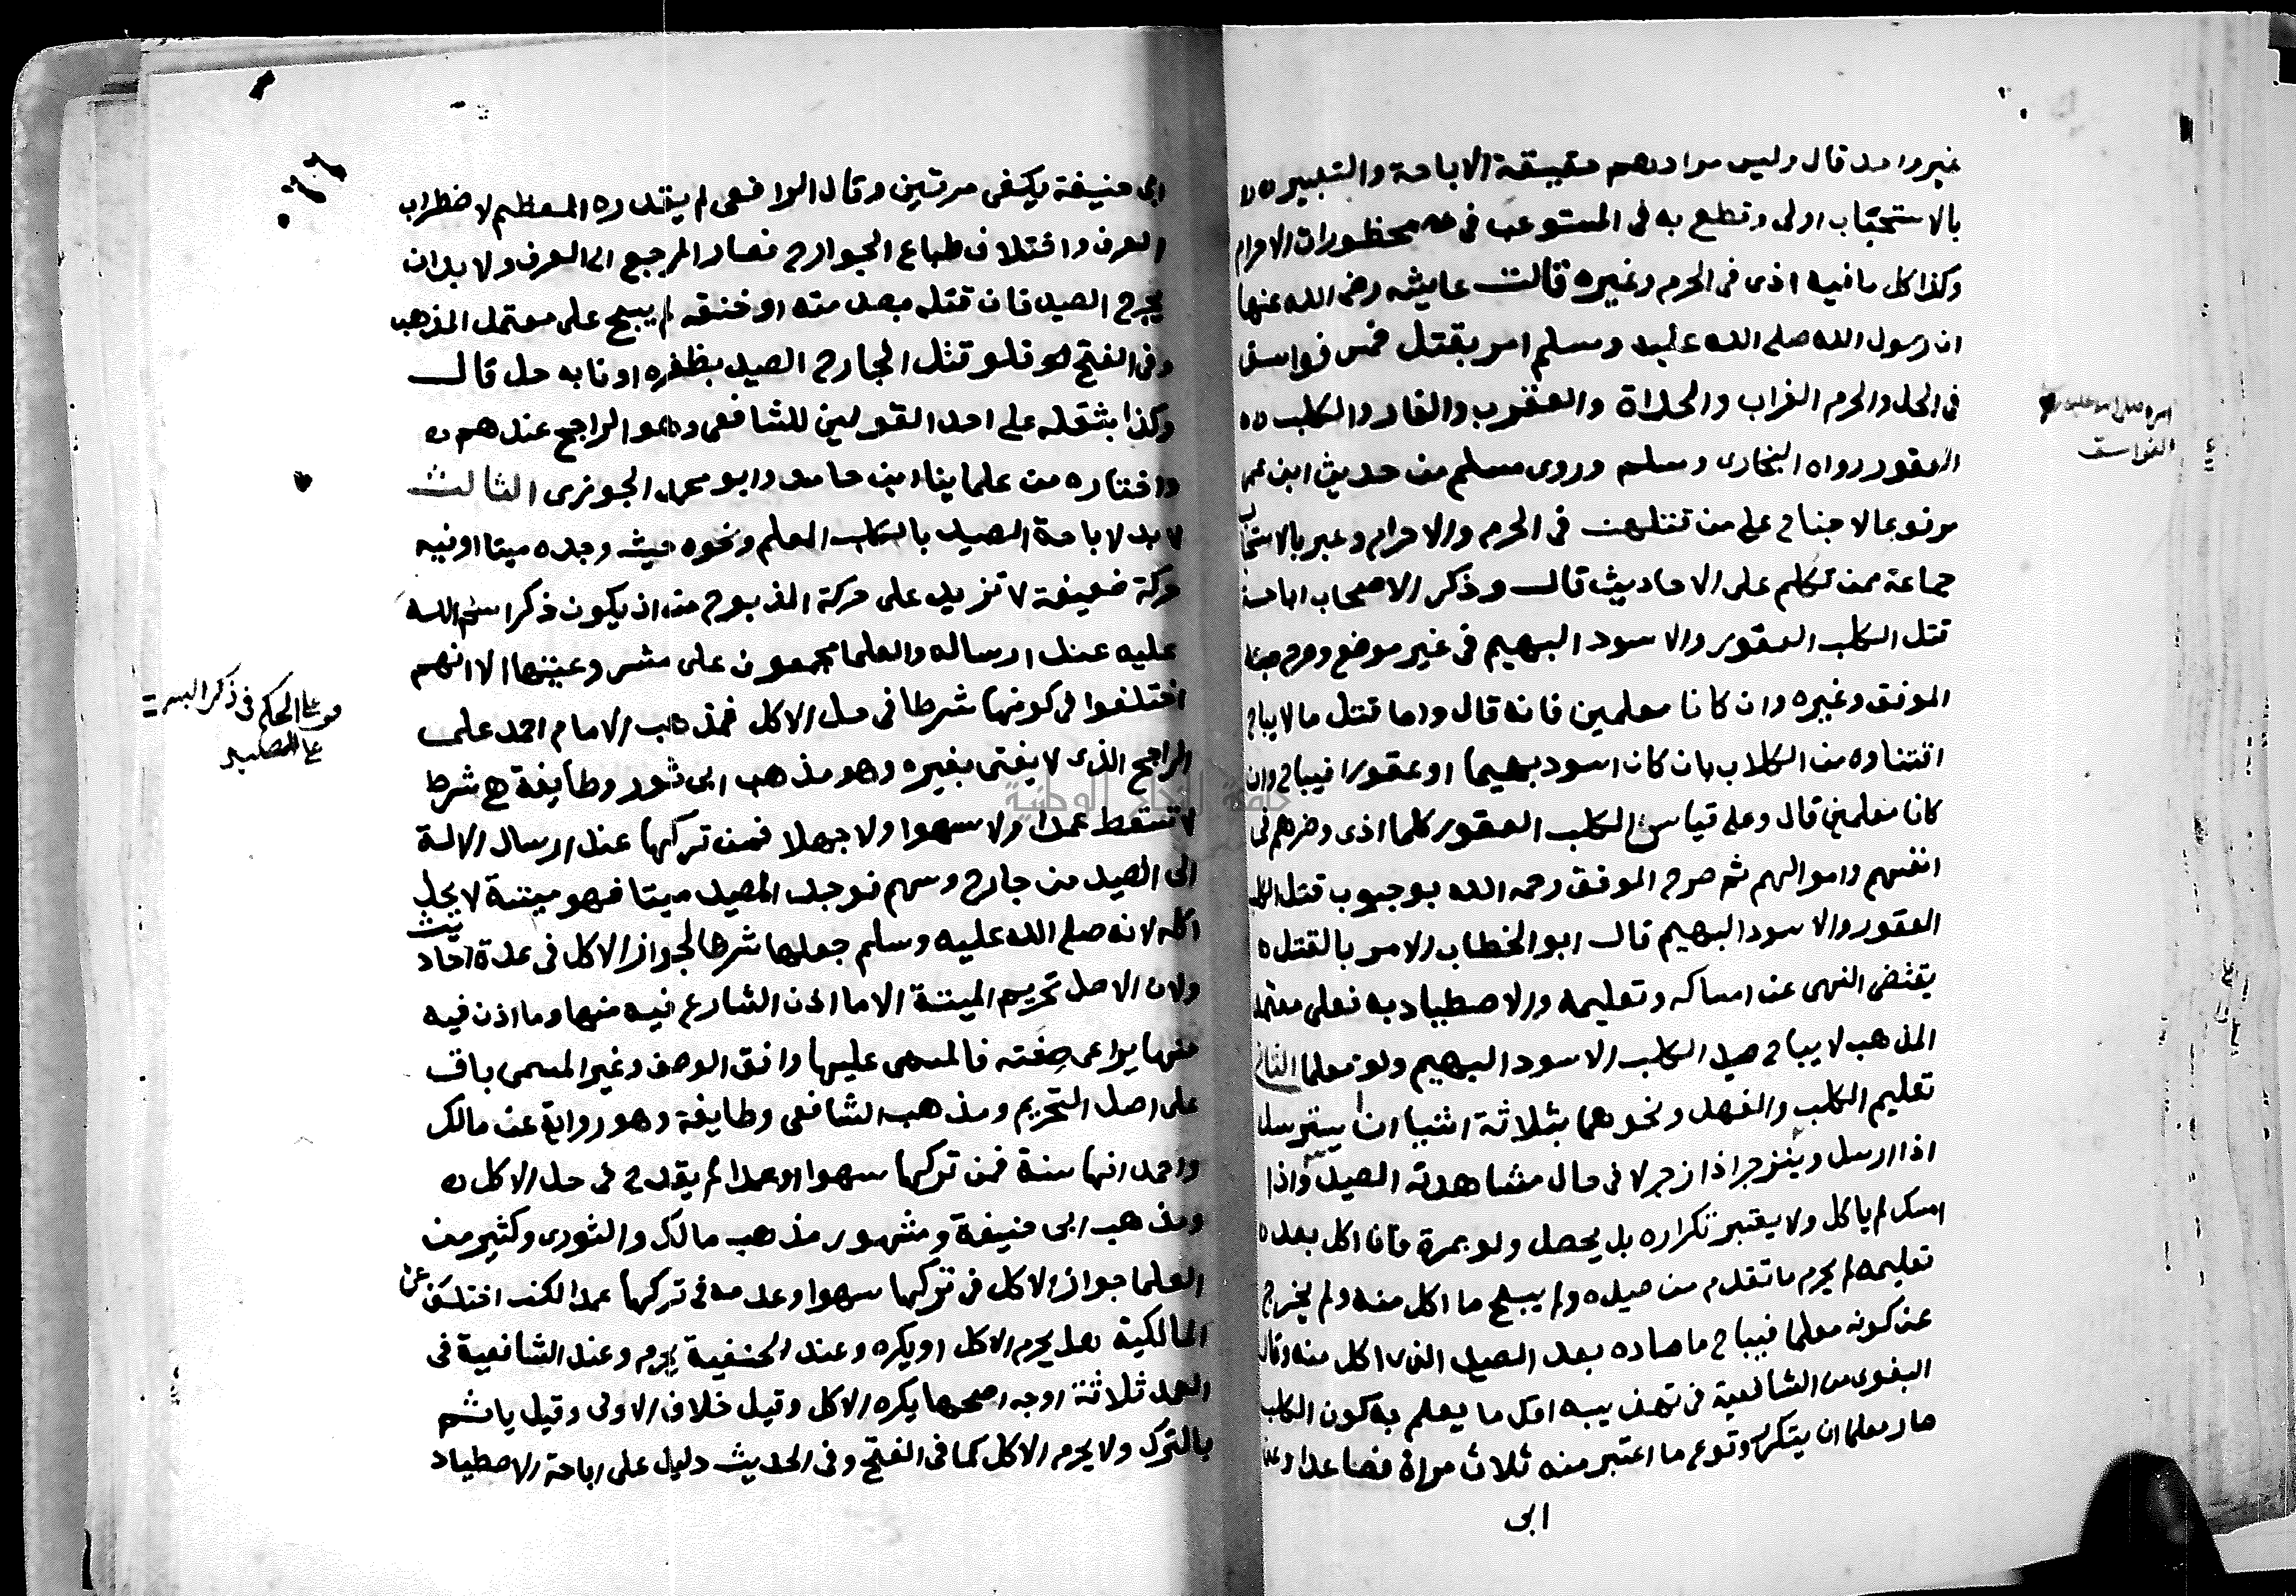 غير واحد قال وليس مرادهم حقيقة الاباحة والتعبير
بالاستحباب اولى وقطع به في المستوعب في محظورات الاحرام
وكذا كل ما فيه اذى في الحرم وغيره قالت عايشه رضى الله عنها
ان رسول الله صلى الله عليه وسلم امر بقتل خمس فواسق
في الحل والحرم الغراب والحداة والعقرب والفار والكلب
العقور رواه البخارى ومسلم وروى مسلم من حديث ابن عمر
مرفوعا لا جناح على من قتلهن في الحرم والاحرام وعبر بالاستحباب
جماعة ممن تكلم على الاحاديث قال وذكر الاصحاب اباحة
قتل الكلب العقور والاسود البهيم في غير موضع وصرح به
الموفق وغيره وان كانا معلمين فانه قال واما قتل ما لا يباح
اقتناوه من الكلاب بان كان اسود بهيما او عقورا فيباح وان
كانا معلمين قال وعلى قياس الكلب العقور كلما اذى وضرهم في
انفسهم واموالهم ثم صرح الموفق رحمه الله بوجوب قتل الكلب
العقور والاسود البهيم قال ابو الخطاب الامر بالقتل
يقتضى النهى عن امساكه وتعليمه والاصطياد به فعلى معتمد
المذهب لا يباح صيد الكلب الاسود البهيم ولو معلما الثانى
تعليم الكلب والفهد ونحوهما بثلاثة اشيا ان يسترسل
اذا ارسل وينزجر اذا زجر لا في حال مشاهدته الصيد واذا
امسك لم ياكل ولا يعتبر تكراره بل يحصل ولو بمرة فان اكل بعد
تعليمه لم يحرم ما تقدم من صيده ولم يبح ما اكل منه ولم يخرج
عن كونه معلما فيباح ما صاده بعد الصيد الذى اكل منه وقال
البغوى من الشافعية في تهذيبه اقل ما يعلم به كون الكلب
صار معلما ان يتكرر وقوع ما اعتبر منه ثلاث مراة فصاعدا وعن
ابى
امره صلى الله عليه وسلم
الفواسق
ابى حنيفة يكفى مرتين وقال الرافعى لم يقدره المعظم لاضطراب
العرف واختلاف طباع الجوارح فصار المرجع الى العرف ولا بد ان
يجرح الصيد فان قتله بصدمته او خنقه لم يبح على معتمد المذهب
وفى الفتح لو قتل الجارح الصيد بظفره او نابه حل قال
وكذا بثقله على احد القولين للشافعى وهو الراجح عندهم
واختاره من علماينا ابن حامد وابو محمد الجوزى الثالث
لا بد لاباحة الصيد بالكلب المعلم ونحوه حيث وجده ميتا او فيه
حركة ضعيفة لا تزيد على حركة المذبوح من ان يكون ذكر اسم الله
عليه عند ارساله والعلما مجمعون على مشروعيتها الا انهم
اختلفوا في كونها شرطا في حل الاكل فمذهب الامام احمد على
الراجح الذى لا يفتى بغيره وهو مذهب ابى ثور وطايفة هى شرط
لا تسقط عمدا ولا سهوا ولا جهلا فمن تركها عند ارسال الالة
الى الصيد من جارح وسهم فوجد الصيد ميتا فهو ميتة لا يحل
اكله لانه صلى الله عليه وسلم جعلها شرطا لجواز الاكل في عدة احاديث
ولان الاصل تحريم الميتة الا ما اذن الشارع فيه منها وما اذن فيه
منها يراعى صفته فالمسمى عليها وافق الوصف وغير المسمى باق
على اصل التحريم ومذهب الشافعى وطايفة وهو رواية عن مالك
واحمد انها سنة فمن تركها سهوا او عمدا لم يقدح في حل الاكل
ومذهب ابى حنيفة ومشهور مذهب مالك والثورى وكثير من
العلما جواز الاكل في تركها سهوا وعدمه في تركها عمدا لكن اختلف عن
المالكية هل يحرم الاكل او يكره وعند الحنفية يحرم وعند الشافعية في
العمد ثلاثة اوجه اصحها يكره الاكل وقيل خلاف الاولى وقيل ياثم
بالترك ولا يحرم الاكل كما في الفتح وفى الحديث دليل على اباحة الاصطياد
الحكم في ذكر
على الصيد
جامعة النجاح الوطنية